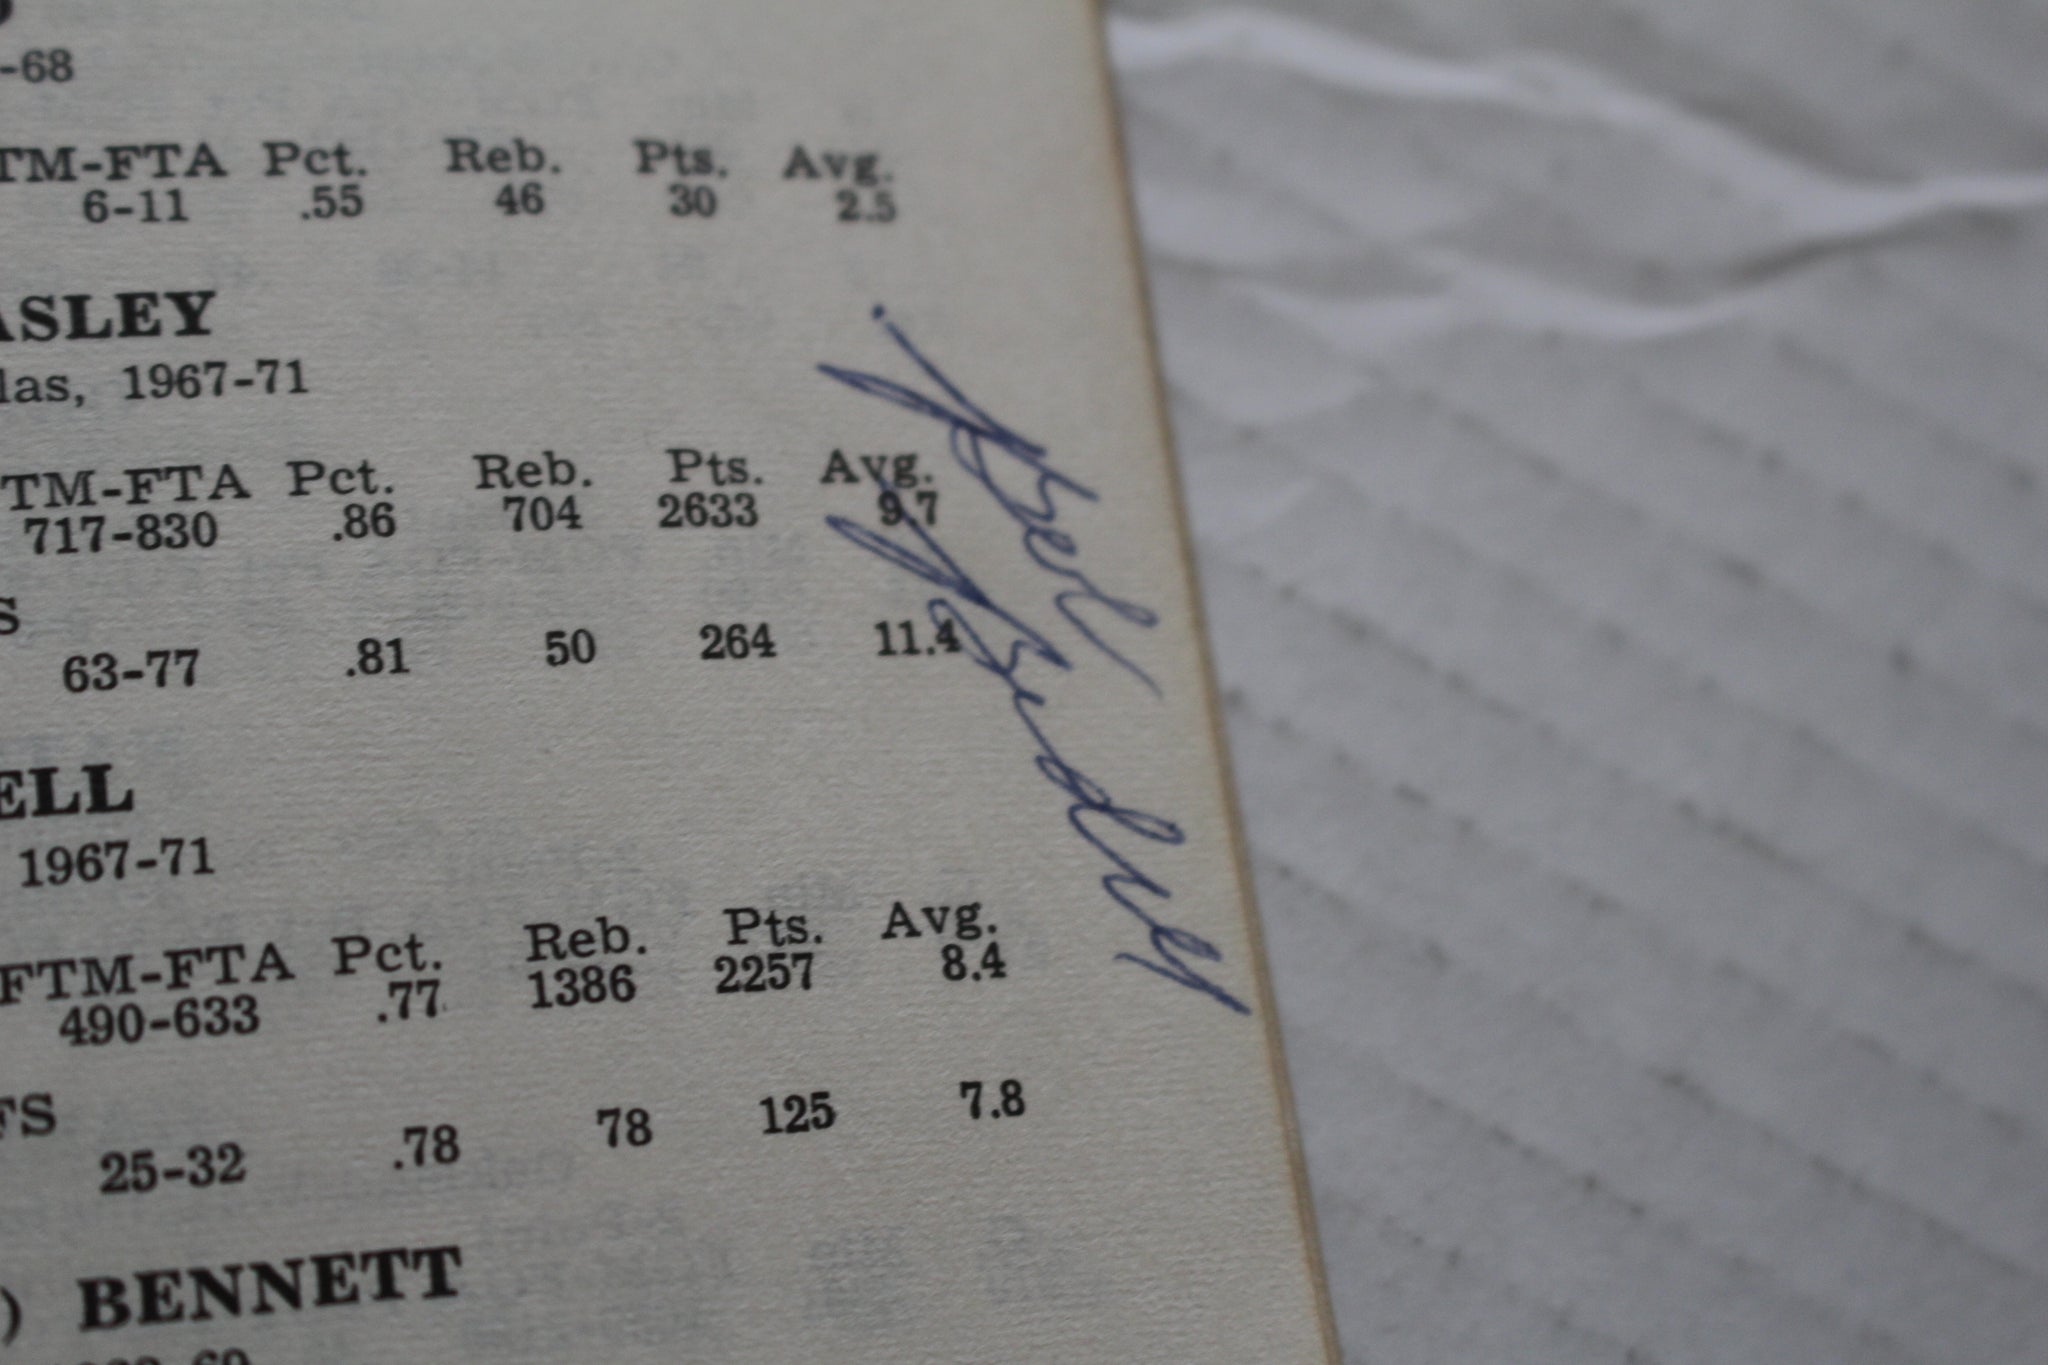 -68
TM-FTA Pct. Reb. Pts. Avg.
6-11 .55 46 30 2.5
ASLEY
las, 1967-71
TM-FTA Pct. Reb. Pts. Avg.
717-830 .86 704 2633 9.7
S
63-77 .81 50 264 11.4
ELL
1967-71
FTM-FTA Pct. Reb. Pts. Avg.
490-633 .77 1386 2257 8.4
FS
25-32 .78 78 125 7.8
) BENNETT